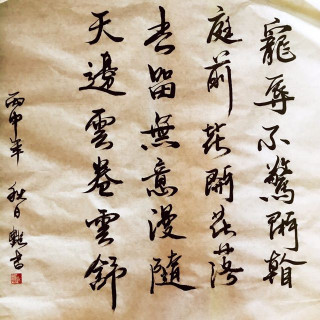 寵辱不驚閒看
庭前花開花落
去留無意漫隨
天邊雲卷雲舒
丙申年 秋日 書